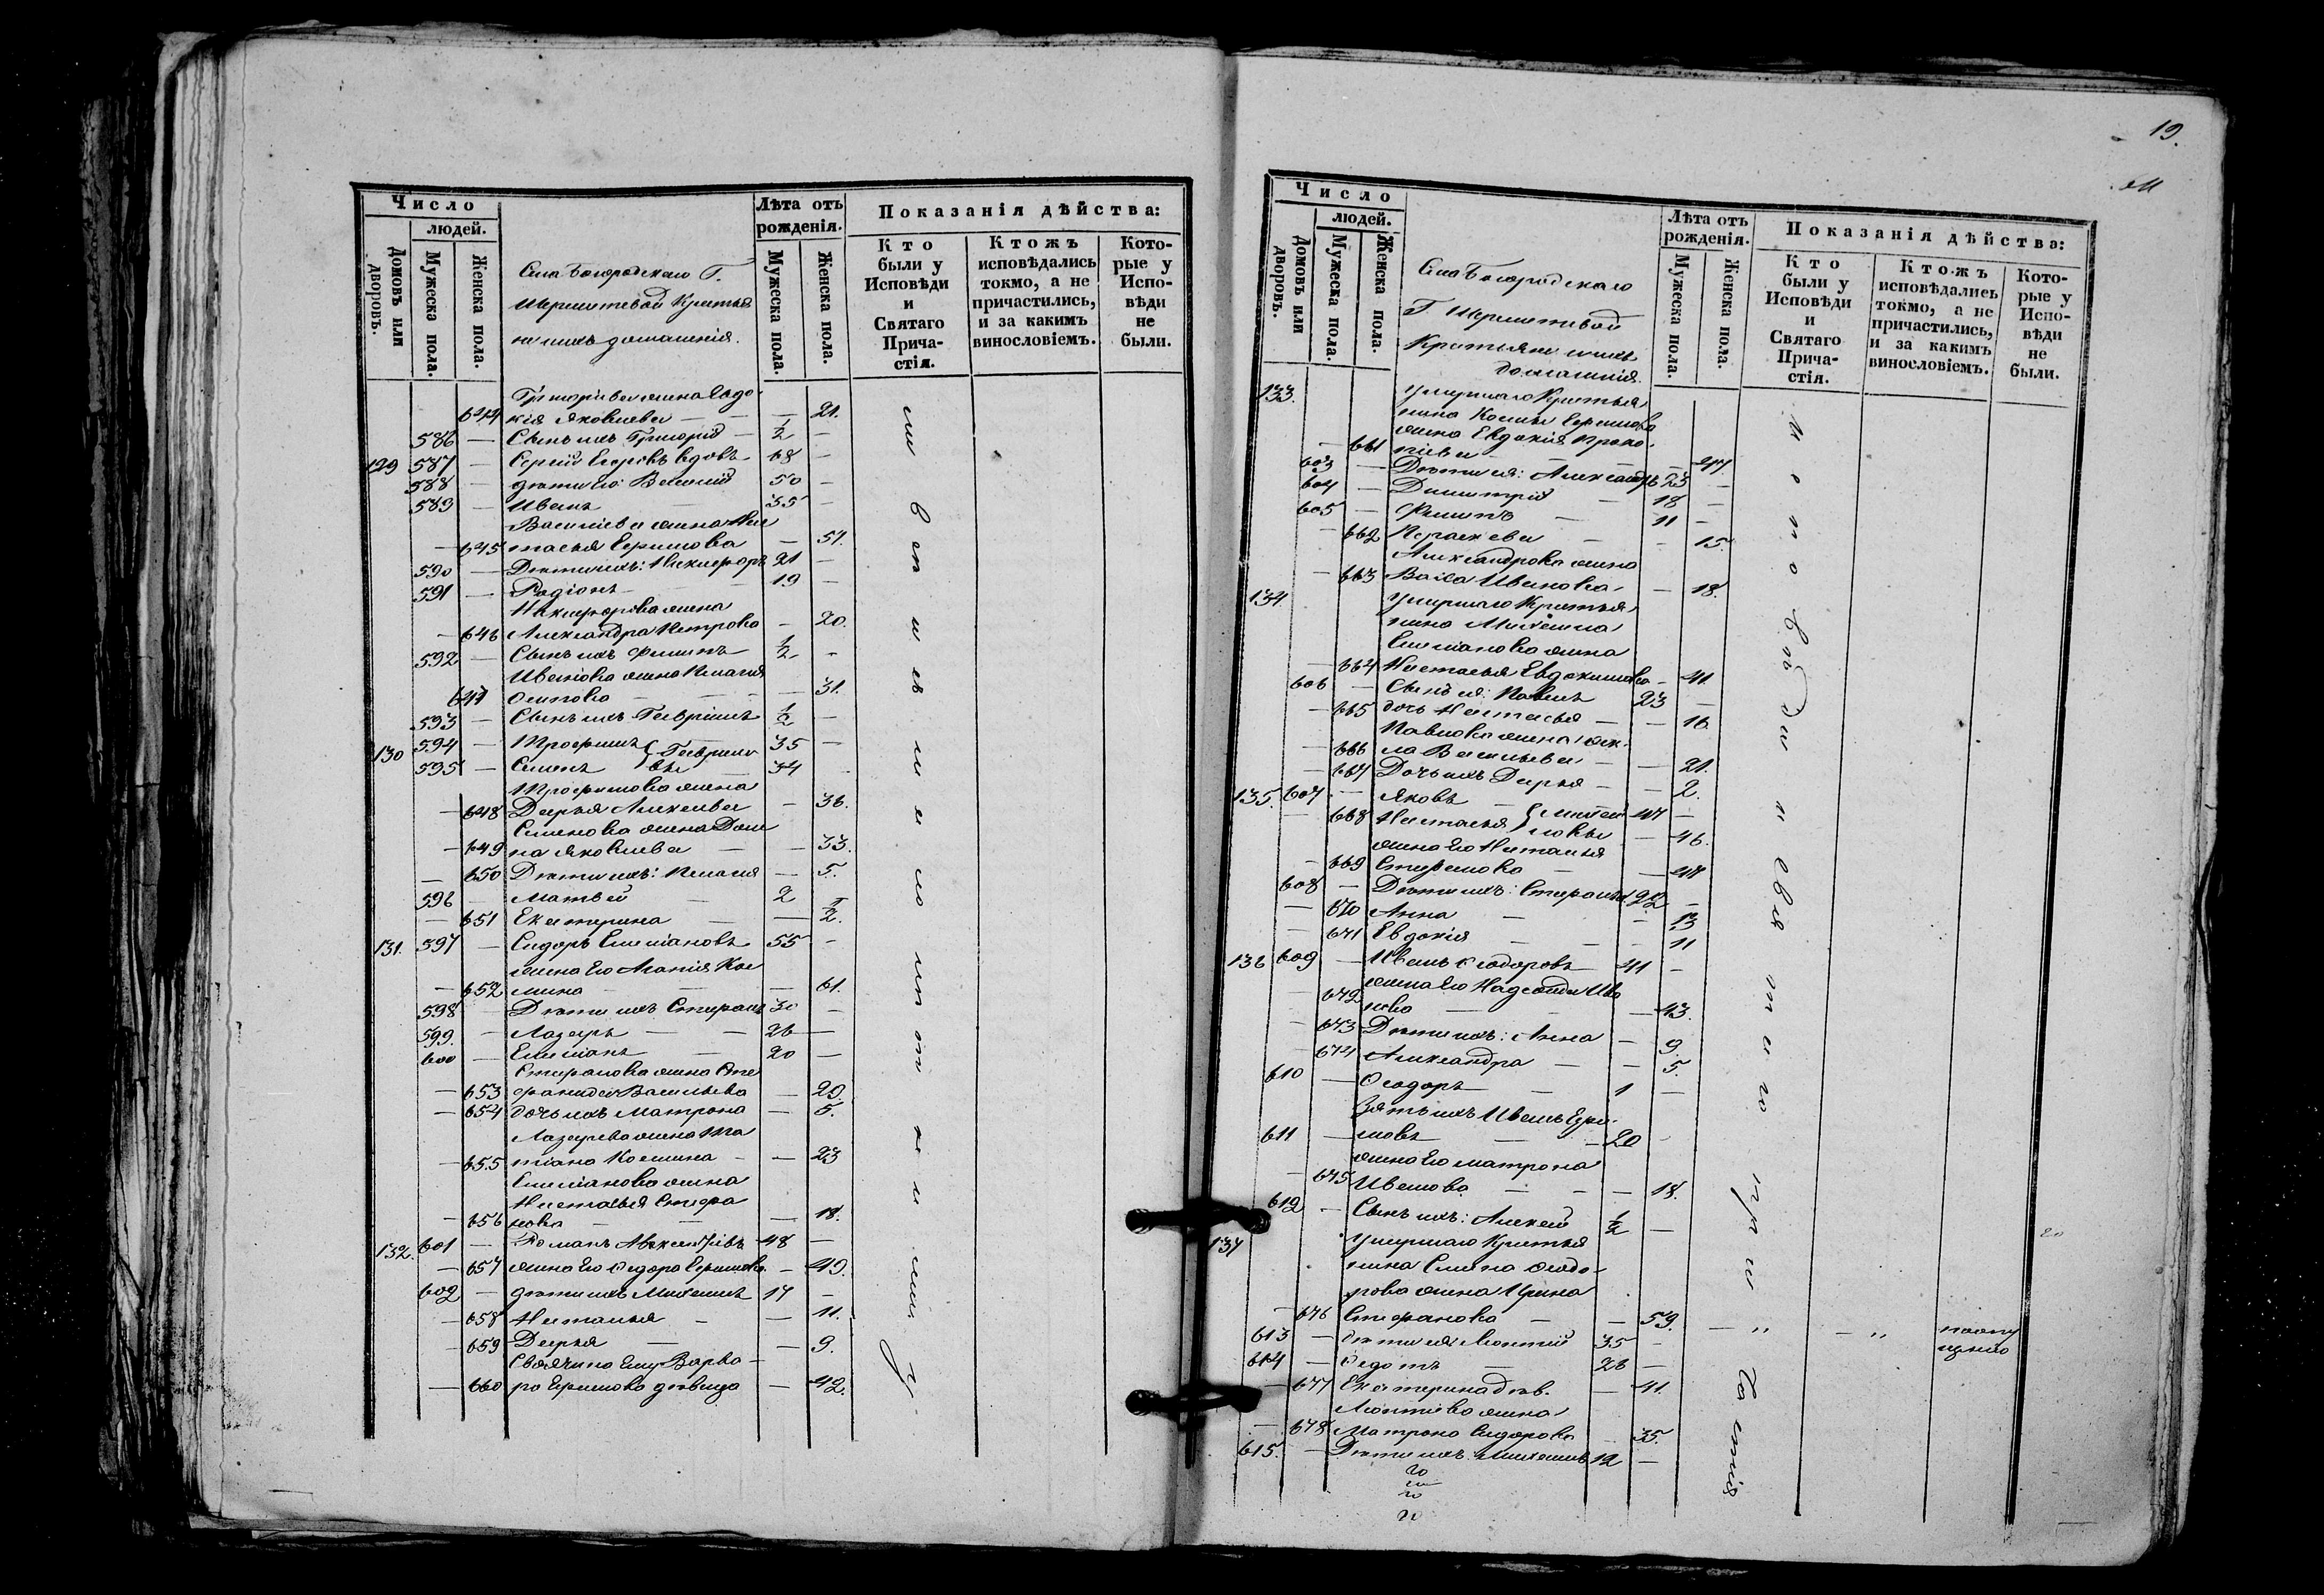 Число
людей.
Домовъ или дворовъ.
Мужеска пола.
Женска пола.
Села Богородскаго Г.
Шереметевой Крестья
не и ихъ домашнія.
Лѣта отъ
рожденія.
Мужеска пола.
Женска пола.
Показанія дѣйства:
Кто
были у
Исповѣди
и
Святаго
Прича-
стія.
Ктожъ
исповѣдались
токмо, а не
причастились,
и за какимъ
винословіемъ.
Кото-
рые у
Испо-
вѣди
не
были.
Григорьева жена Евдо-
644 кія Яковлева — — 21.
586 — Сынъ ихъ Григорій — 1/2 —
129 587 — Сергій Егоровъ вдовъ 68 —
588 — дѣти Его: Василій 50 —
589 — Иванъ — 35 —
Васильева жена Нас
— 645 тасья Ефимова — 51.
590 — Дѣти ихъ: Никифоръ 21 —
591 — Родіонъ — 19 —
Никифорова жена
— 646 Александра Петрова — 20.
592 — Сынъ ихъ Филипъ 1/2 —
Иванова жена Пелагія
647 Осипова — — 31.
593 — Сынъ ихъ Гавріилъ 1/2 —
130 594 — Трофимъ } Гаврило 35 —
595 — Семенъ } вы 34
Трофимова жена
— 648 Дарья Алексеева — 36.
Семенова жена Дом
— 649 на Яковлева — — 33.
— 650 Дѣти ихъ: Пелагія — 5.
596 — Матвей — 2
— 651 Екатерина — — 1/2.
131. 597 — Сидоръ Емеліановъ 55 —
жена Его Агапія Кос
— 652 мина — — 61.
598 — Дѣти ихъ Стефанъ 30 —
599. — Лазарь — 26 —
600 — Емеліанъ — 20 —
Стефанова жена Сте
— 653 фанида Васильева — 29.
— 654 дочь ихъ Матрона — 5.
Лазарева жена Та
— 655 тіана Космина — — 23
Емеліанова жена
Настасья Стефа
— 656 нова — — 18.
132. 601 — Романъ Авксентіевъ 48 —
— 657 жена Его Федора Ефимова — 49.
602 — дѣти ихъ Михаилъ 17 —
— 658 Наталья — — 11.
— 659 Дарья — — 9.
Своячина Ему Варва-
— 660 ра Ефимова дѣвица — 42.
19.
Число
людей.
Домовъ или дворовъ.
Мужеска пола.
Женска пола.
Села Богородскаго
Г. Шереметевой
Крестьяне и ихъ
домашнія.
Лѣта отъ
рожденія.
Мужеска пола.
Женска пола.
Показанія дѣйства:
Кто
были у
Исповѣди
и
Святаго
Прича-
стія.
Ктожъ
исповѣдались
токмо, а не
причастились,
и за какимъ
винословіемъ.
Кото-
рые у
Испо-
вѣди
не
были.
133. Умершаго Крестья
нина Космы Ефимова
жена Евдокія Проко-
— 661 піева — — 47.
603 — Дѣти ея: Александръ 23 —
604 — Димитрій — 18 —
605 — Филипъ — 11 —
— 662 Параскева — — 15.
Александрова жена
— 663 Васса Иванова — 18.
134 Умершаго Крестья
нина Михаила
Емеліанова жена
— 664 Настасья Евдокимова — 41.
606 — Сынъ ея: Павелъ 23 —
— 665 дочь Настасья — — 16
Павлова жена
— 666 ла Васильева — — 21.
— 667 Дочь ихъ Дарья — — 2.
135. 607 — Яковъ 47 —
— 668 Настасья — 46.
жена Его Наталья
— 669 Стефанова — — 47
608 — Дѣти ихъ: Стефанъ 22 —
— 670 Анна — — 13
— 671 Евдокія — — 11
136 609 — Иванъ Феодоровъ 41 —
жена Его Надежда Ива
— 672 нова — — 43.
— 673 Дѣти ихъ: Анна — 9.
— 674 Александра — — 5.
610 — Феодоръ — 1 —
Зять ихъ Иванъ Ефи-
611 — мовъ — 20 —
жена Его Матрона
— 675 Иванова — — 18.
612 — Сынъ ихъ: Алексей 1/2 —
137 Умершаго Крестья
нина Семена Феодо-
рова жена Ирина
— 676 Стефанова — — 59. — „ — „
613 — дѣти ея Леонтій 35 —
614 — Федотъ — 26 —
— 677 Екатерина дѣв. — 41.
Леонтьева жена
— 678 Матрона Сидорова — 35.
615. — Дѣти ихъ: Михаилъ 12 —
Исповѣди и свя
таго при
частія